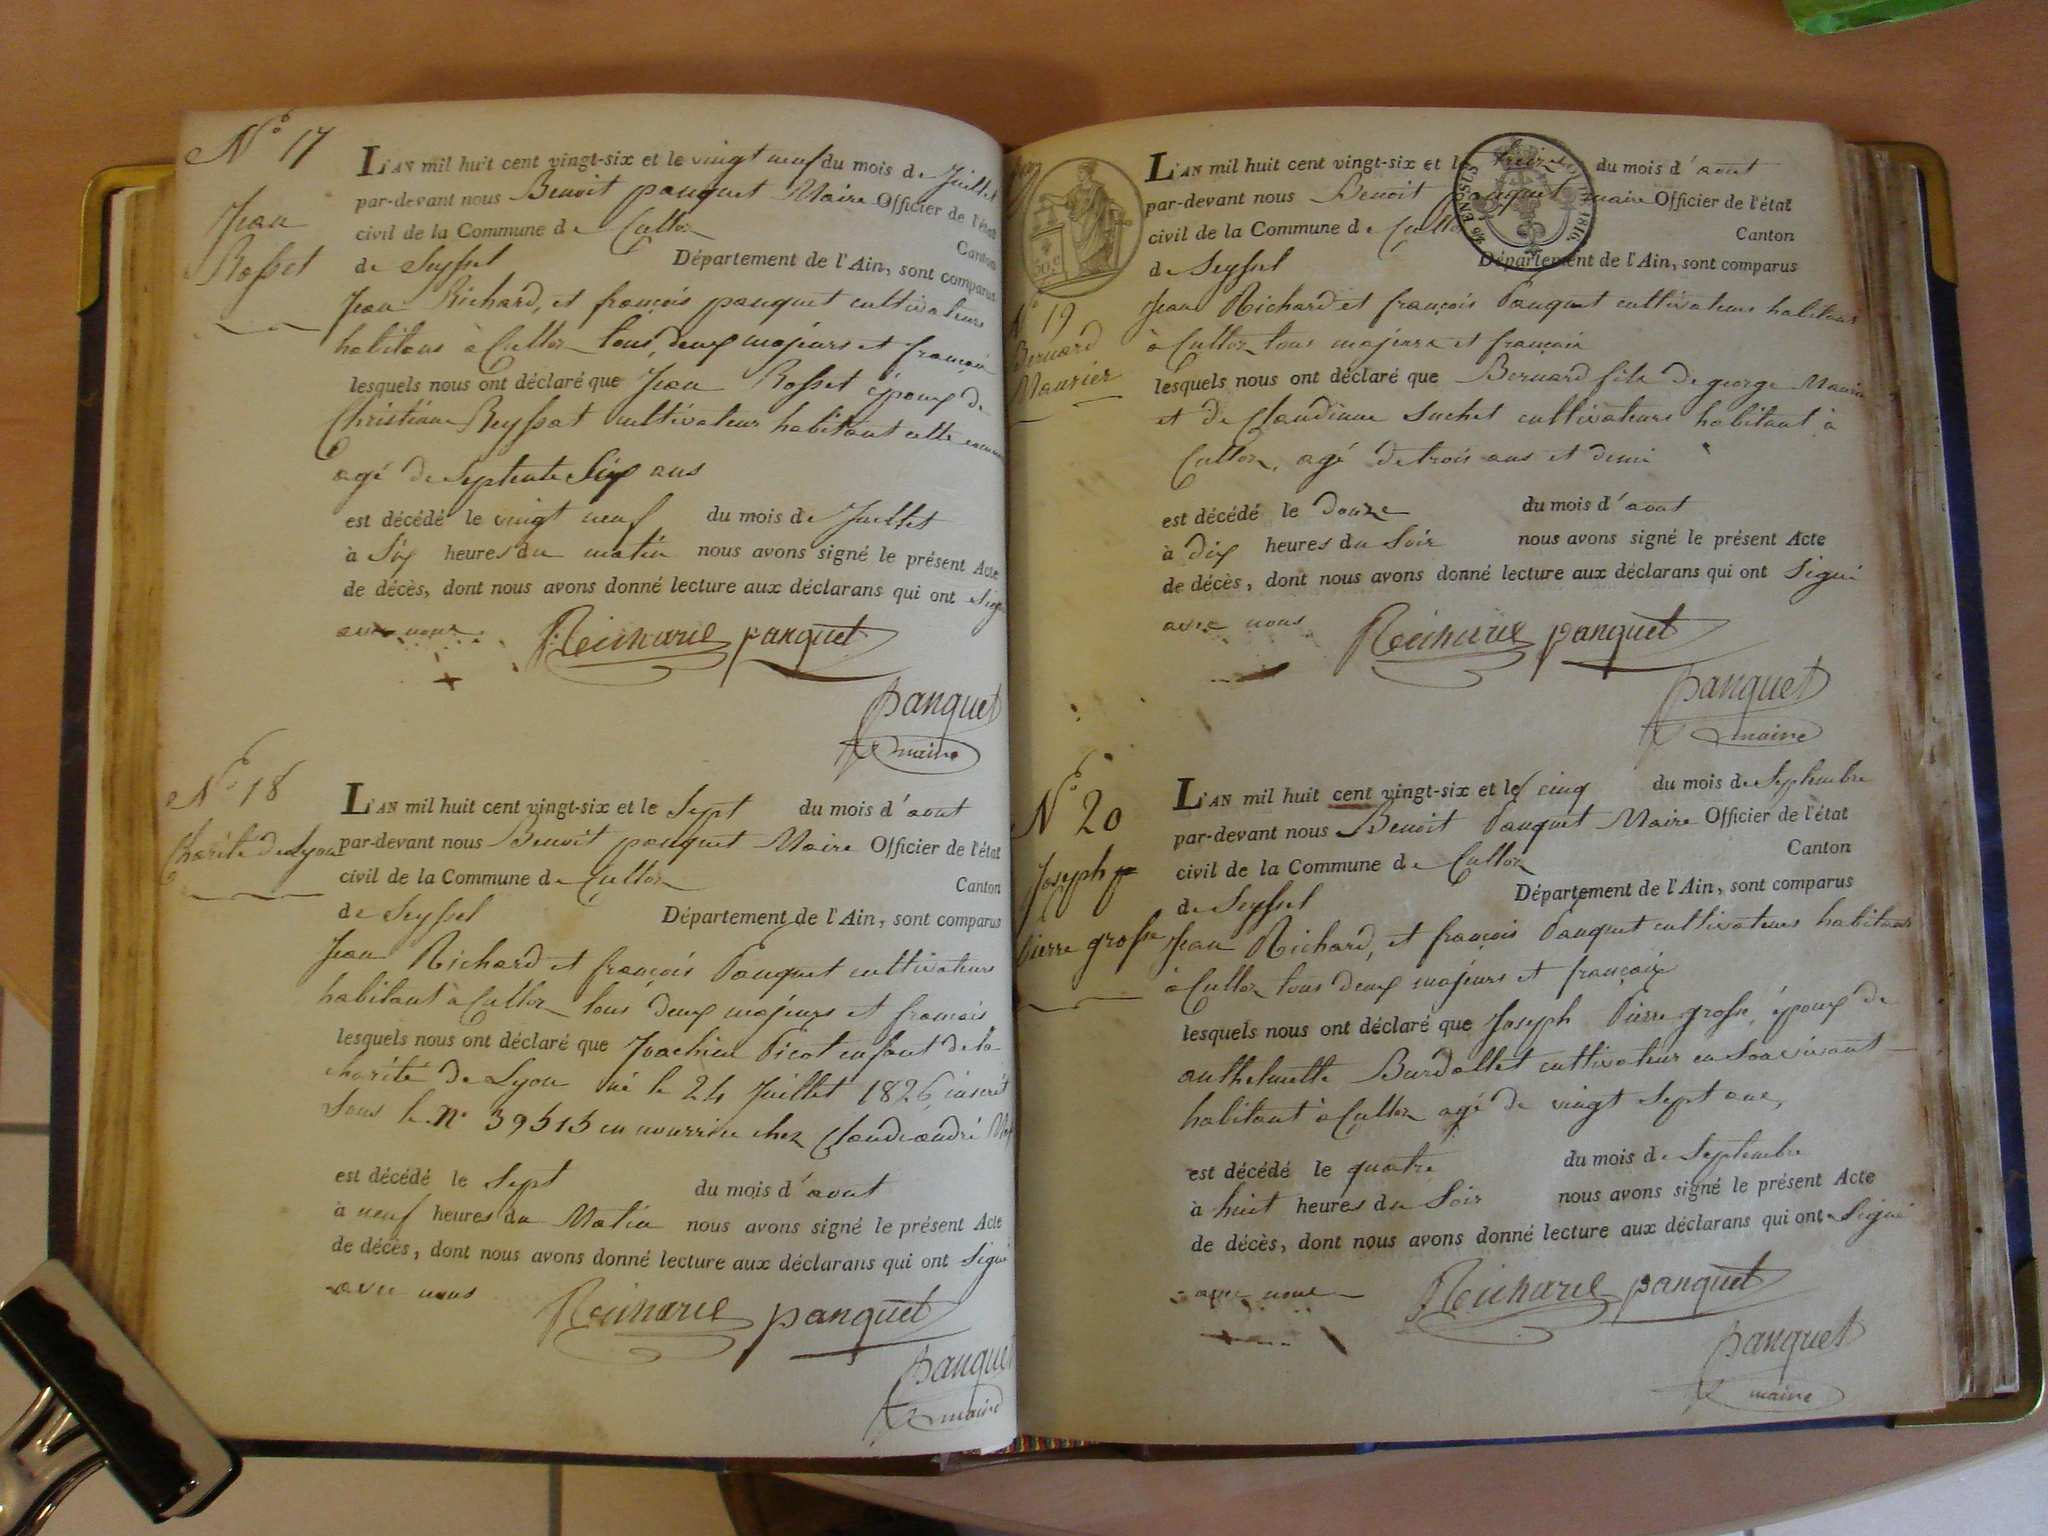 N° 17
Jean
Rosset
L'AN mil huit cent vingt-six et le vingt neuf du mois de Juillet
par-devant nous Benoit panquet Maire Officier de l'état
civil de la Commune de Culloz Canton
de Seyssel Département de l'Ain, sont comparus
Jean Richard, et françois panquet cultivateurs
habitans à Culloz tous deux majeurs et français
lesquels nous ont déclaré que Jean Rosset époux de
Christiane Reyssat cultivateur habitant cette
agé de Septente Six ans
est décédé le vingt neuf du mois de Juillet
à Six heures du matin nous avons signé le présent Acte
de décès, dont nous avons donné lecture aux déclarans qui ont
avec nous
Richard panquet
panquet
maire
N° 18
Charité de Lyon
L'AN mil huit cent vingt-six et le Sept du mois d'aout
par-devant nous Benoit panquet Maire Officier de l'état
civil de la Commune de Culloz Canton
de Seyssel Département de l'Ain, sont comparus
Jean Richard et françois Panquet cultivateurs
habitant à Culloz tous deux majeurs et francais
lesquels nous ont déclaré que Joachim Picot enfant de la
charité de Lyon né le 24 Juillet 1826, inscrit
Sous le N° 39515 en nourrice chez Claude andré
est décédé le Sept du mois d'aout
à neuf heures du Matin nous avons signé le présent Acte
de décès, dont nous avons donné lecture aux déclarans qui ont Signé
avec nous
Richard panquet
panquet
maire
50 c
EN SUS
1816.
N° 19
Bernard
Maurier
L'AN mil huit cent vingt-six et le treize du mois d'aout
par-devant nous Benoit Panquet maire Officier de l'état
civil de la Commune de Culloz Canton
de Seyssel Département de l'Ain, sont comparus
Jean Richard et françois Panquet cultivateurs habitans
à Culloz tous majeurs et français
lesquels nous ont déclaré que Bernard fils de george
et de Claudinne Suchet cultivateurs habitant à
Culloz, agé de trois ans et demi
est décédé le douze du mois d'aout
à dix heures du Soir nous avons signé le présent Acte
de décès, dont nous avons donné lecture aux déclarans qui ont Signé
avec nous
Richard panquet
panquet
maire
N° 20
Joseph
Pierre grosse
L'AN mil huit cent vingt-six et le cinq du mois de Septembre
par-devant nous Benoit Panquet Maire Officier de l'état
civil de la Commune de Culloz Canton
de Seyssel Département de l'Ain, sont comparus
Jean Richard, et françois Panquet cultivateurs habitans
à Culloz tous deux majeurs et français
lesquels nous ont déclaré que Joseph Pierre grosse, époux de
anthelmette Burdallet cultivateur en Son vivant
habitant à Culloz agé de vingt Sept ans,
est décédé le quatre du mois de Septembre
à huit heures du Soir nous avons signé le présent Acte
de décès, dont nous avons donné lecture aux déclarans qui ont Signé
avec nous
Richard panquet
panquet
maire